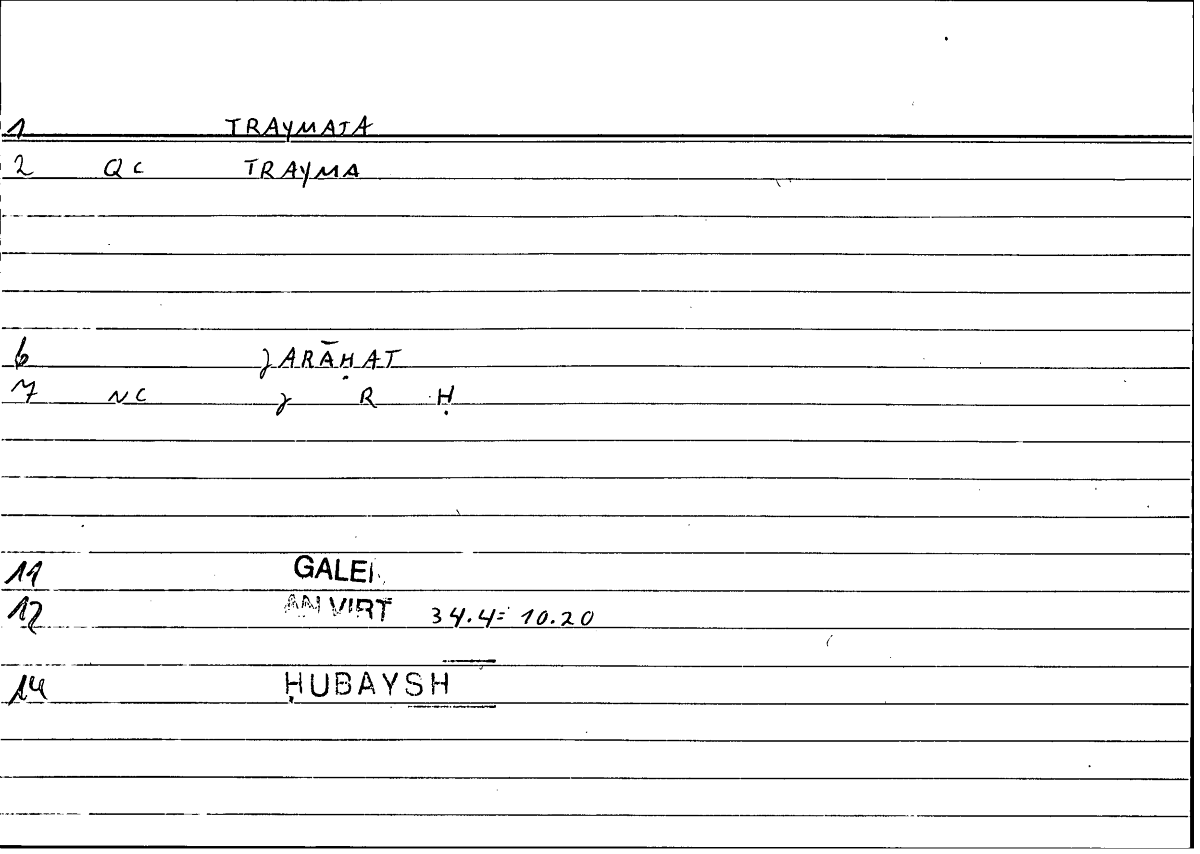 1 TRAYMATA
2 QC TRAYMA
6 ȷARĀḤAT
7 NC ȷ R Ḥ
11 GALE
12 AN VIRT 34.4= 10.20
14 ḤUBAYSH